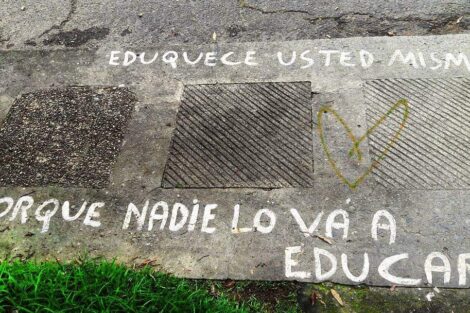 EDUQUECE USTED MISM
PORQUE NADIE LO VÁ A
EDUCAR